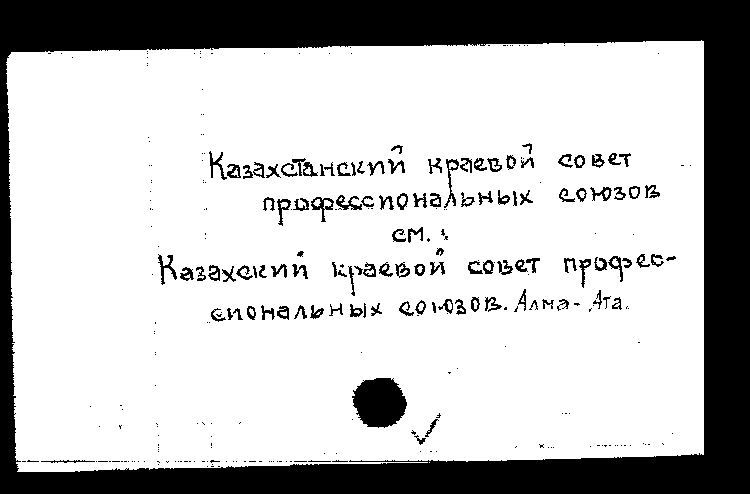 Казахстанский краевой совет
профессиональных союзов
см.:
Казахский краевой совет профес-
сиональных союзов. Алма-Ата.